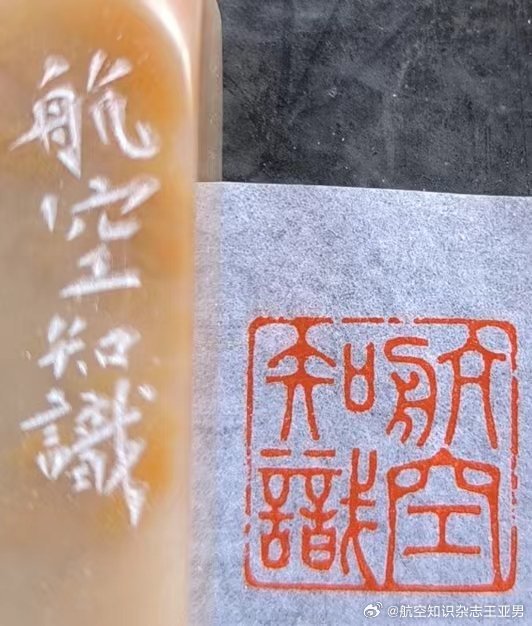 航空知識
航空
知識
@航空知识杂志王亚男